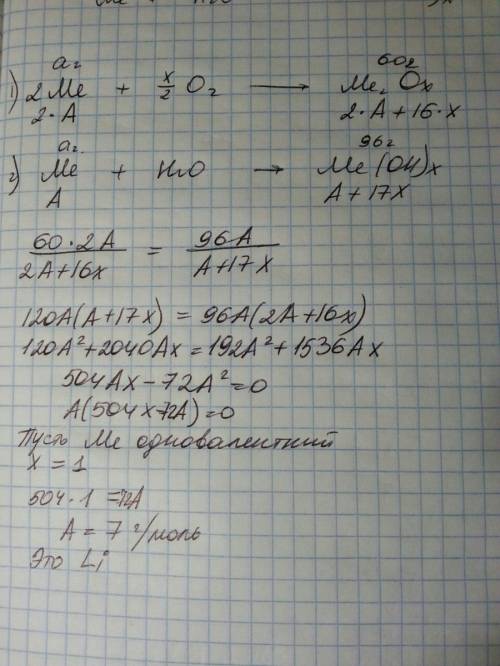 аг 60г
1) 2Me + x/2 O₂ → Me₂Ox
2·A 2·A+16·x
аг 96г
2) Me + H₂O → Me(OH)x
A A+17x
60·2A/2A+16x = 96A/A+17x
120A(A+17x) = 96A(2A+16x)
120A²+2040Ax=192A²+1536Ax
504Ax-72A²=0
A(504x-72A)=0
Пусть Me одновалентный
x=1
504·1=72A
A=7 г/моль
Это Li